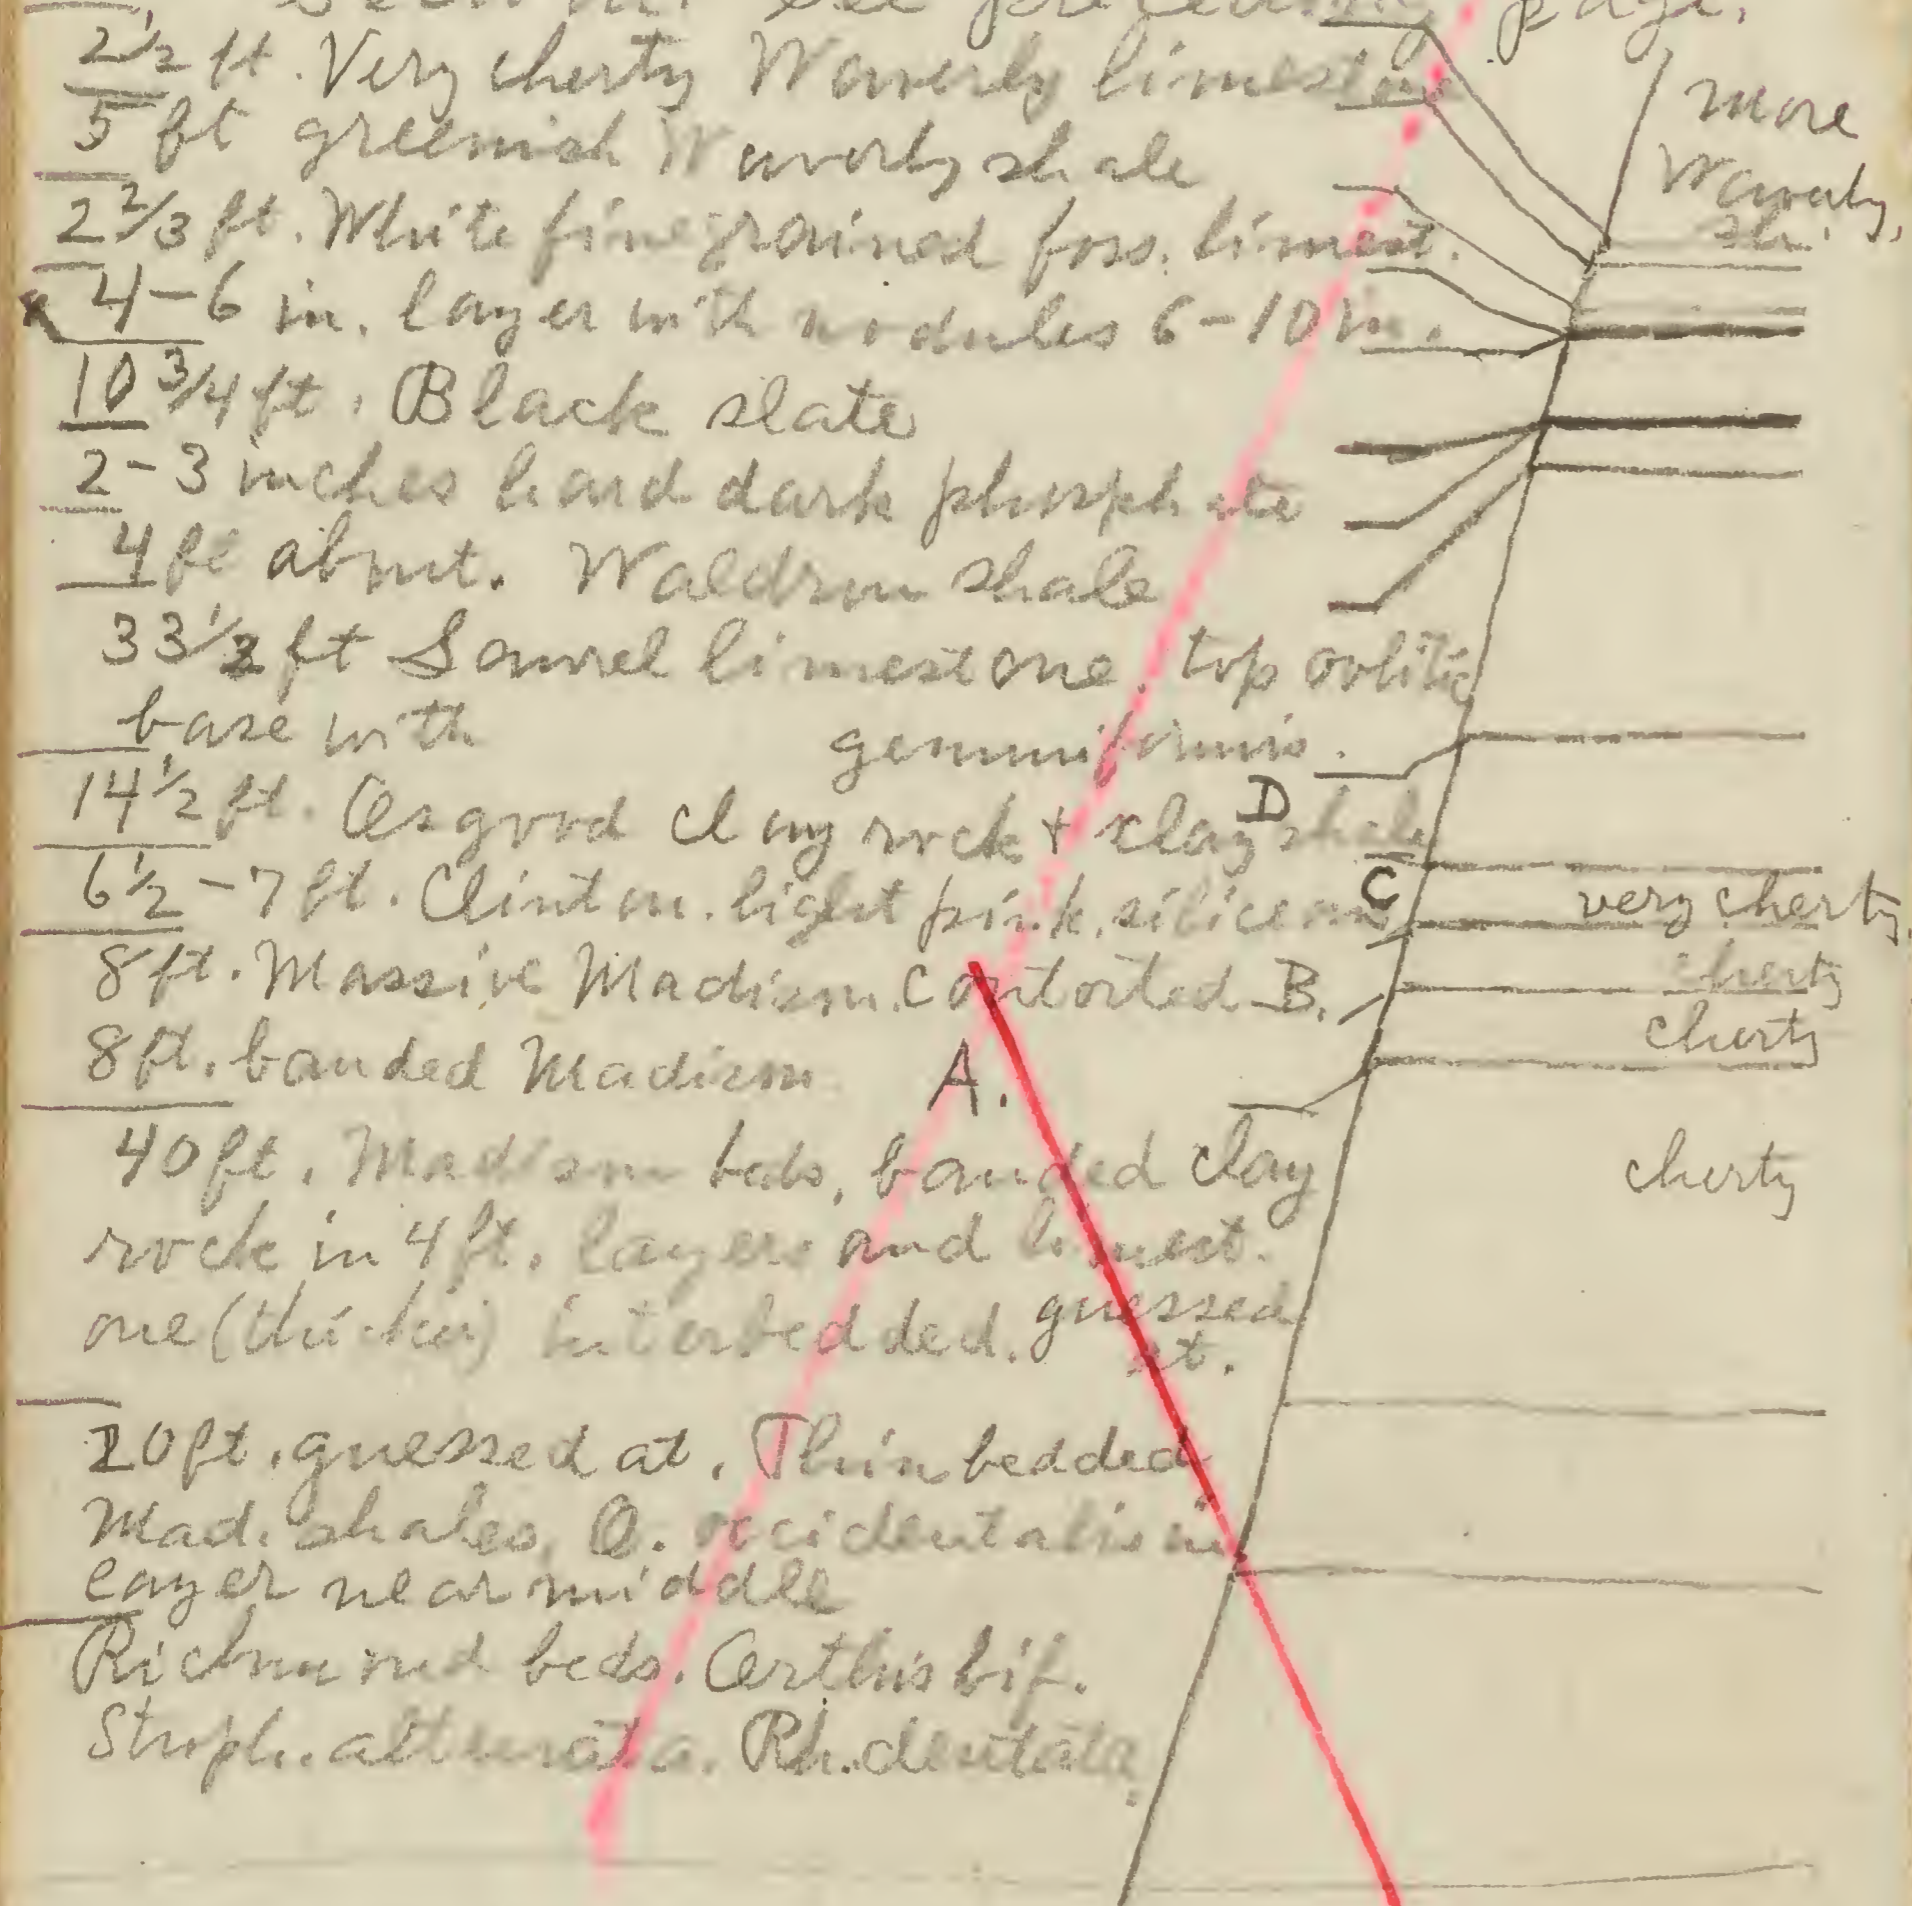 see preceding page.
2½ ft. Very cherty Waverly limestone
more
5 ft greenish Waverly shale
Waverly.
2⅔ ft. White fine grained foss. limest.
sh.
4-6 in. layer with nodules 6-10 in.
10¾ ft. Black slate
2-3 inches hard dark phosphate
4 ft about. Waldron shale
33½ ft Laurel limestone, top oolitic
base with gemmiformis.
14½ ft. Osgood clay rock + clay shale
D
C
6½-7 ft. Clinton. light pink, siliceous
very cherty
8 ft. Massive Madison. Contorted B.
cherty
cherty
8 ft. banded Madison A.
40 ft. Madison beds, banded clay
cherty
rock in 4 ft. layers and limest.
one (thicker) interbedded. guessed
at.
20 ft. guessed at. Thin bedded
Mad. shales, O. occidentalis in
layer near middle
Richmond beds. Orthis bif.
Stroph. alternata. Rh. dentata.